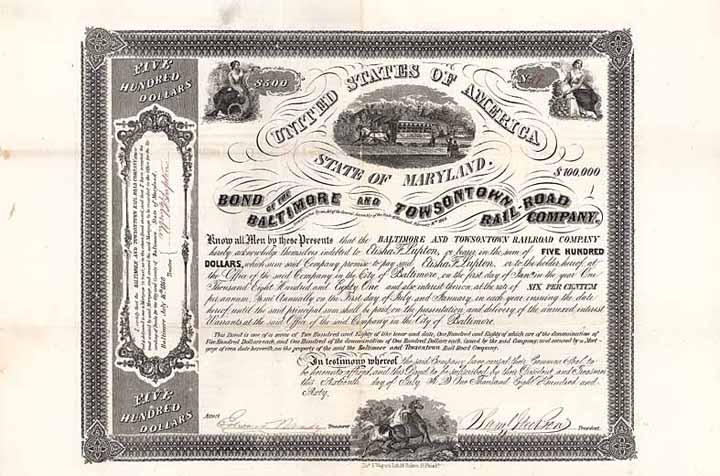 FIVE
HUNDRED
DOLLARS
$500
No
UNITED STATES OF AMERICA
STATE OF MARYLAND.
$100,000
BOND OF THE
BALTIMORE AND TOWSONTOWN
RAIL ROAD
COMPANY.
Know all Men by these Presents that the BALTIMORE AND TOWSONTOWN RAILROAD COMPANY
hereby acknowledge themselves indebted to Elisha F. Lupton, or bearer in the sum of FIVE HUNDRED
DOLLARS, which sum said Company promise to pay to Elisha F. Lupton, or to the holder hereof, at
the Office of the said Company in the City of Baltimore, on the first day of January in the year One
Thousand Eight Hundred and Eighty One and also interest thereon, at the rate of SIX PER CENTUM
per annum, Semi Annually on the First day of July, and January, in each year ensuing the date
hereof until the said principal sum shall be paid, on the presentation and delivery of the annexed interest
Warrants at the said Office of the said Company in the City of Baltimore.
This Bond is one of a series of Two Hundred and Eighty of like tenor and date, One Hundred and Eighty of which are of the denomination of
Five Hundred Dollars each, and One Hundred of the denomination of One Hundred Dollars each, issued by the said Company and secured by a Mort-
gage of even date herewith, on the property of the said the Baltimore and Towsontown Rail Road Company.
In testimony whereof the said Company have caused their Common Seal to
be hereunto affixed, and this Bond to be subscribed by their President and Treasurer
this Sixteenth day of July A. D. One Thousand Eight Hundred and
Sixty.
Attest
Treasurer
President.
Baltimore July 16th 1860
Trustee
FIVE
HUNDRED
DOLLARS